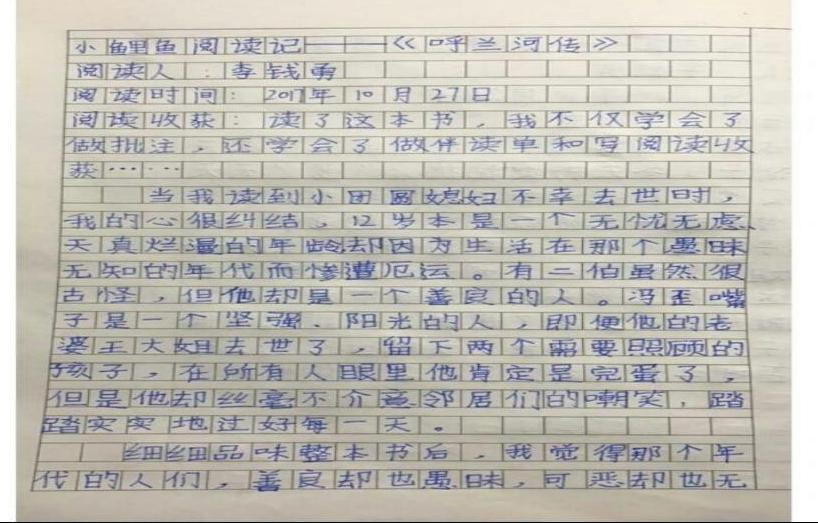 小鲤鱼阅读记——《呼兰河传》
阅读人：李钱勇
阅读时间：2017年10月27日
阅读收获：读了这本书，我不仅学会了
做批注，还学会了做伴读单和写阅读收
获……
当我读到小团圆媳妇不幸去世时，
我的心很纠结，12岁本是一个无忧无虑、
天真烂漫的年龄却因为生活在那个愚昧
无知的年代而惨遭厄运。有二伯虽然很
古怪，但他却是一个善良的人。冯歪嘴
子是一个坚强、阳光的人，即便他的老
婆王大姐去世了，留下两个需要照顾的
孩子，在所有人眼里他肯定是完蛋了，
但是他却丝毫不介意邻居们的嘲笑，踏
踏实实地过好每一天。
细细品味整本书后，我觉得那个年
代的人们，善良却也愚昧，可恶却也无